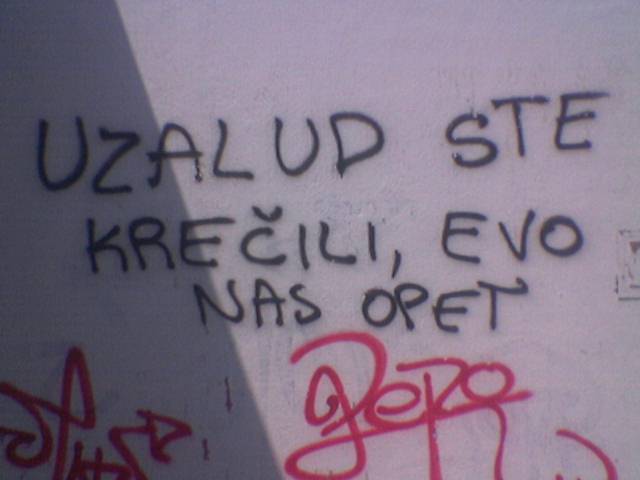 UZALUD STE
KREČILI, EVO
NAS OPET